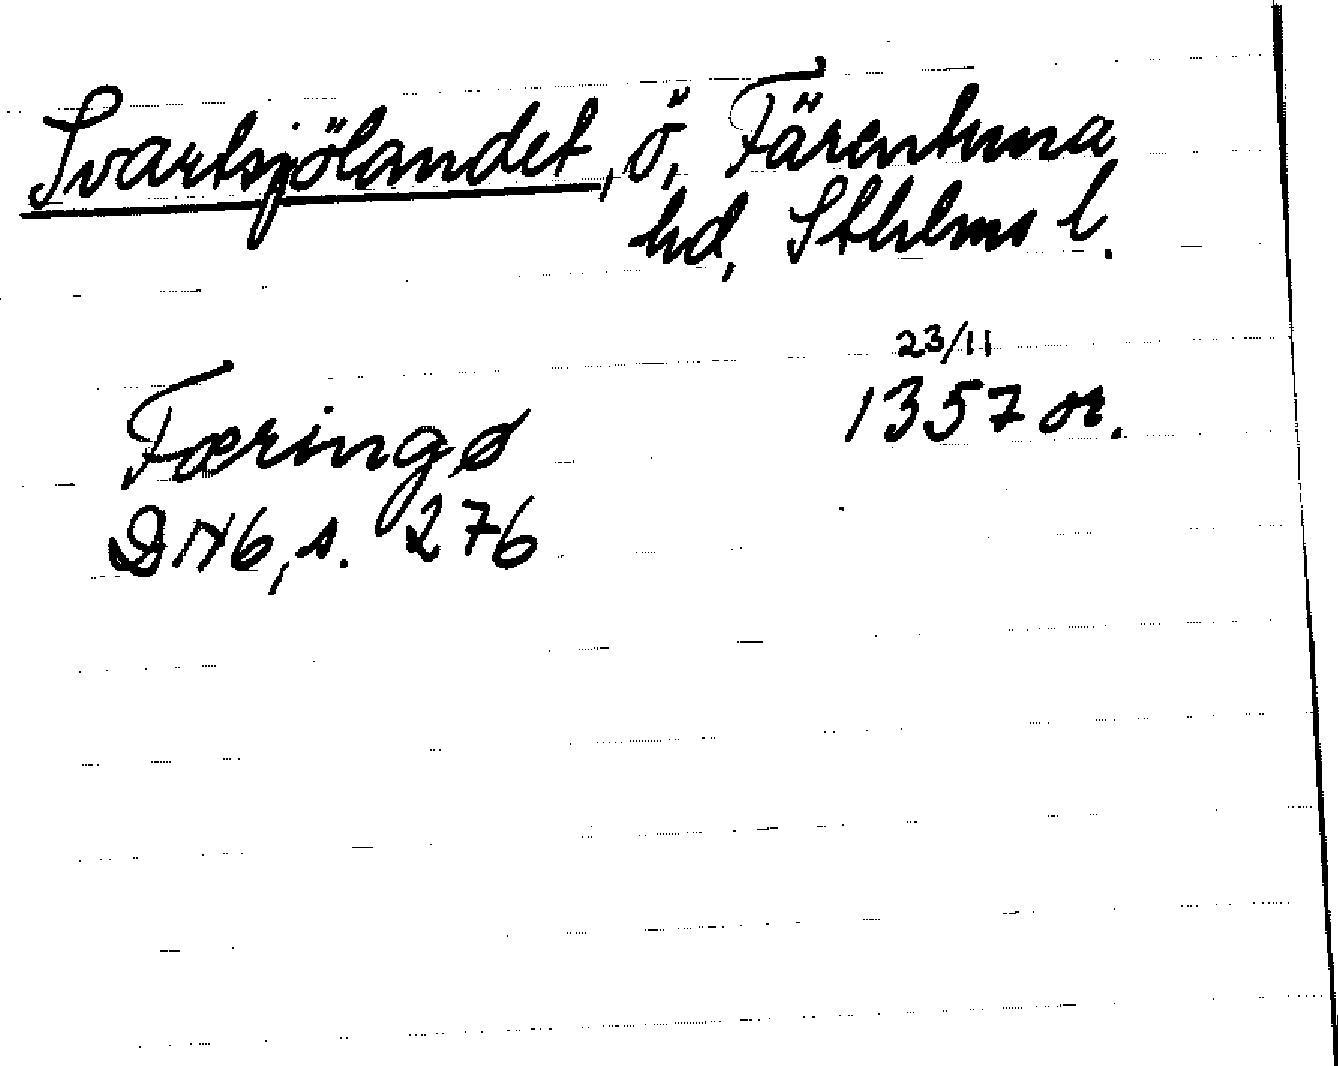 Svartsjölandet, ö, Färentuna
hd, Sthlms l.
23/11
Færingø 1357 or.
DN6, s. 276